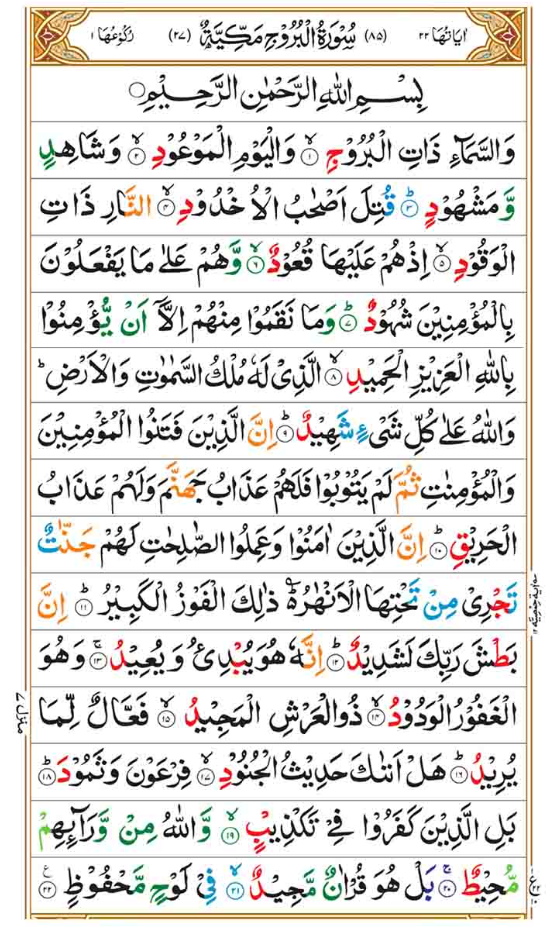 اٰيَاتُهَا ٢٢ (٨٥) سُوْرَةُ الْبُرُوْجِ مَكِّيَّةٌ (٢٧) رُكُوْعُهَا ١
بِسْمِ اللّٰهِ الرَّحْمٰنِ الرَّحِيْمِ ○
وَالسَّمَآءِ ذَاتِ الْبُرُوْجِ ۙ‏ ١ وَالْيَوْمِ الْمَوْعُوْدِ ۙ‏ ٢ وَشَاهِدٍ
وَّمَشْهُوْدٍ ؕ‏ ٣ قُتِلَ اَصْحٰبُ الْاُخْدُوْدِ ۙ‏ ٤ النَّارِ ذَاتِ
الْوَقُوْدِ ۙ‏ ٥ اِذْ هُمْ عَلَيْهَا قُعُوْدٌ ۙ‏ ٦ وَّهُمْ عَلٰى مَا يَفْعَلُوْنَ
بِالْمُؤْمِنِيْنَ شُهُوْدٌ ؕ‏ ٧ وَمَا نَقَمُوْا مِنْهُمْ اِلَّاۤ اَنْ يُّؤْمِنُوْا
بِاللّٰهِ الْعَزِيْزِ الْحَمِيْدِ ۙ‏ ٨ الَّذِىْ لَهٗ مُلْكُ السَّمٰوٰتِ وَالْاَرْضِ ؕ
وَاللّٰهُ عَلٰى كُلِّ شَىْءٍ شَهِيْدٌ ؕ‏ ٩ اِنَّ الَّذِيْنَ فَتَنُوا الْمُؤْمِنِيْنَ
وَالْمُؤْمِنٰتِ ثُمَّ لَمْ يَتُوْبُوْا فَلَهُمْ عَذَابُ جَهَنَّمَ وَلَهُمْ عَذَابُ
الْحَرِيْقِ ؕ‏ ١٠ اِنَّ الَّذِيْنَ اٰمَنُوْا وَعَمِلُوا الصّٰلِحٰتِ لَهُمْ جَنّٰتٌ
تَجْرِىْ مِنْ تَحْتِهَا الْاَنْهٰرُ ۬ؕ ذٰلِكَ الْفَوْزُ الْكَبِيْرُ ؕ‏ ١١ اِنَّ
بَطْشَ رَبِّكَ لَشَدِيْدٌ ؕ‏ ١٢ اِنَّهٗ هُوَ يُبْدِئُ وَيُعِيْدُ ۚ‏ ١٣ وَهُوَ
الْغَفُوْرُ الْوَدُوْدُ ۙ‏ ١٤ ذُو الْعَرْشِ الْمَجِيْدُ ۙ‏ ١٥ فَعَّالٌ لِّمَا
يُرِيْدُ ؕ‏ ١٦ هَلْ اَتٰٮكَ حَدِيْثُ الْجُنُوْدِ ۙ‏ ١٧ فِرْعَوْنَ وَثَمُوْدَ ؕ‏ ١٨
بَلِ الَّذِيْنَ كَفَرُوْا فِىْ تَكْذِيْبٍ ۙ‏ ١٩ وَّاللّٰهُ مِنْ وَّرَآئِهِمْ
مُّحِيْطٌ ؕ‏ ٢٠ بَلْ هُوَ قُرْاٰنٌ مَّجِيْدٌ ۙ‏ ٢١ فِىْ لَوْحٍ مَّحْفُوْظٍ ٢٢
منزل ٧